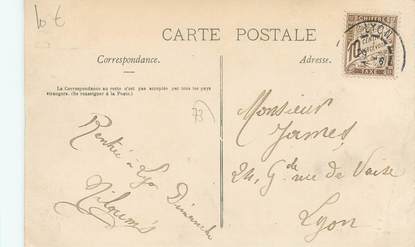 10 €
CARTE POSTALE
Correspondance.
Adresse.
La Correspondance au recto n'est pas acceptée par tous les pays
étrangers. (Se renseigner à la Poste.)
LYON
CHIFFRE
10
TAXE
Rentrée à Lyon Dimanche
Monsieur
James
24, Gde rue de Vaise
Lyon